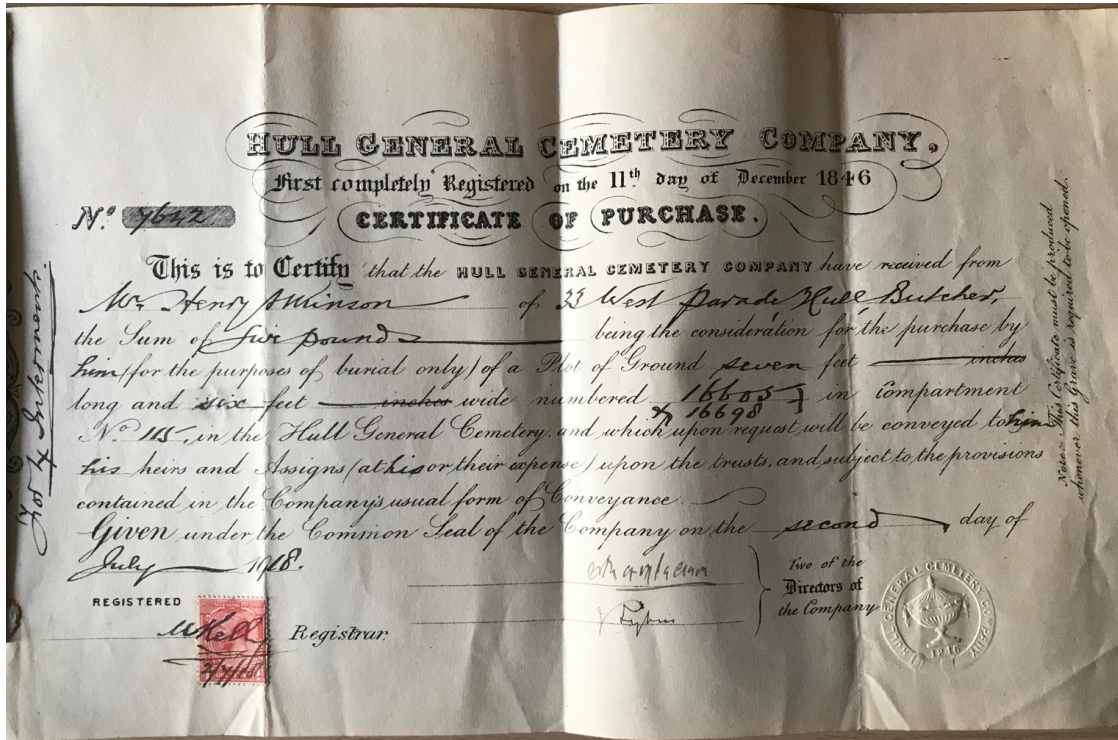 HULL GENERAL CEMETERY COMPANY,
First completely Registered on the 11th day of December 1846
Nº 7642
CERTIFICATE OF PURCHASE.
This is to Certify that the HULL GENERAL CEMETERY COMPANY have received from
Mr. Henry Atkinson of 33 West Parade Hull Butcher,
the Sum of five pounds being the consideration for the purchase by
him (for the purposes of burial only) of a Plot of Ground seven feet inches
long and six feet inches wide numbered 16605
& 16698 in compartment
No. 115, in the Hull General Cemetery. and which upon request will be conveyed to him
his heirs and Assigns (at his or their expense) upon the trusts, and subject to the provisions
contained in the Company's usual form of Conveyance.
Given under the Common Seal of the Company on the second day of
July 1918.
Two of the
Directors of
the Company
REGISTERED
MKelly Registrar.
2/7/18
HULL GENERAL CEMETERY COMPANY
1846
Note:- This Certificate must be produced
whenever this Grave is required to be opened.
For 4 Interments.